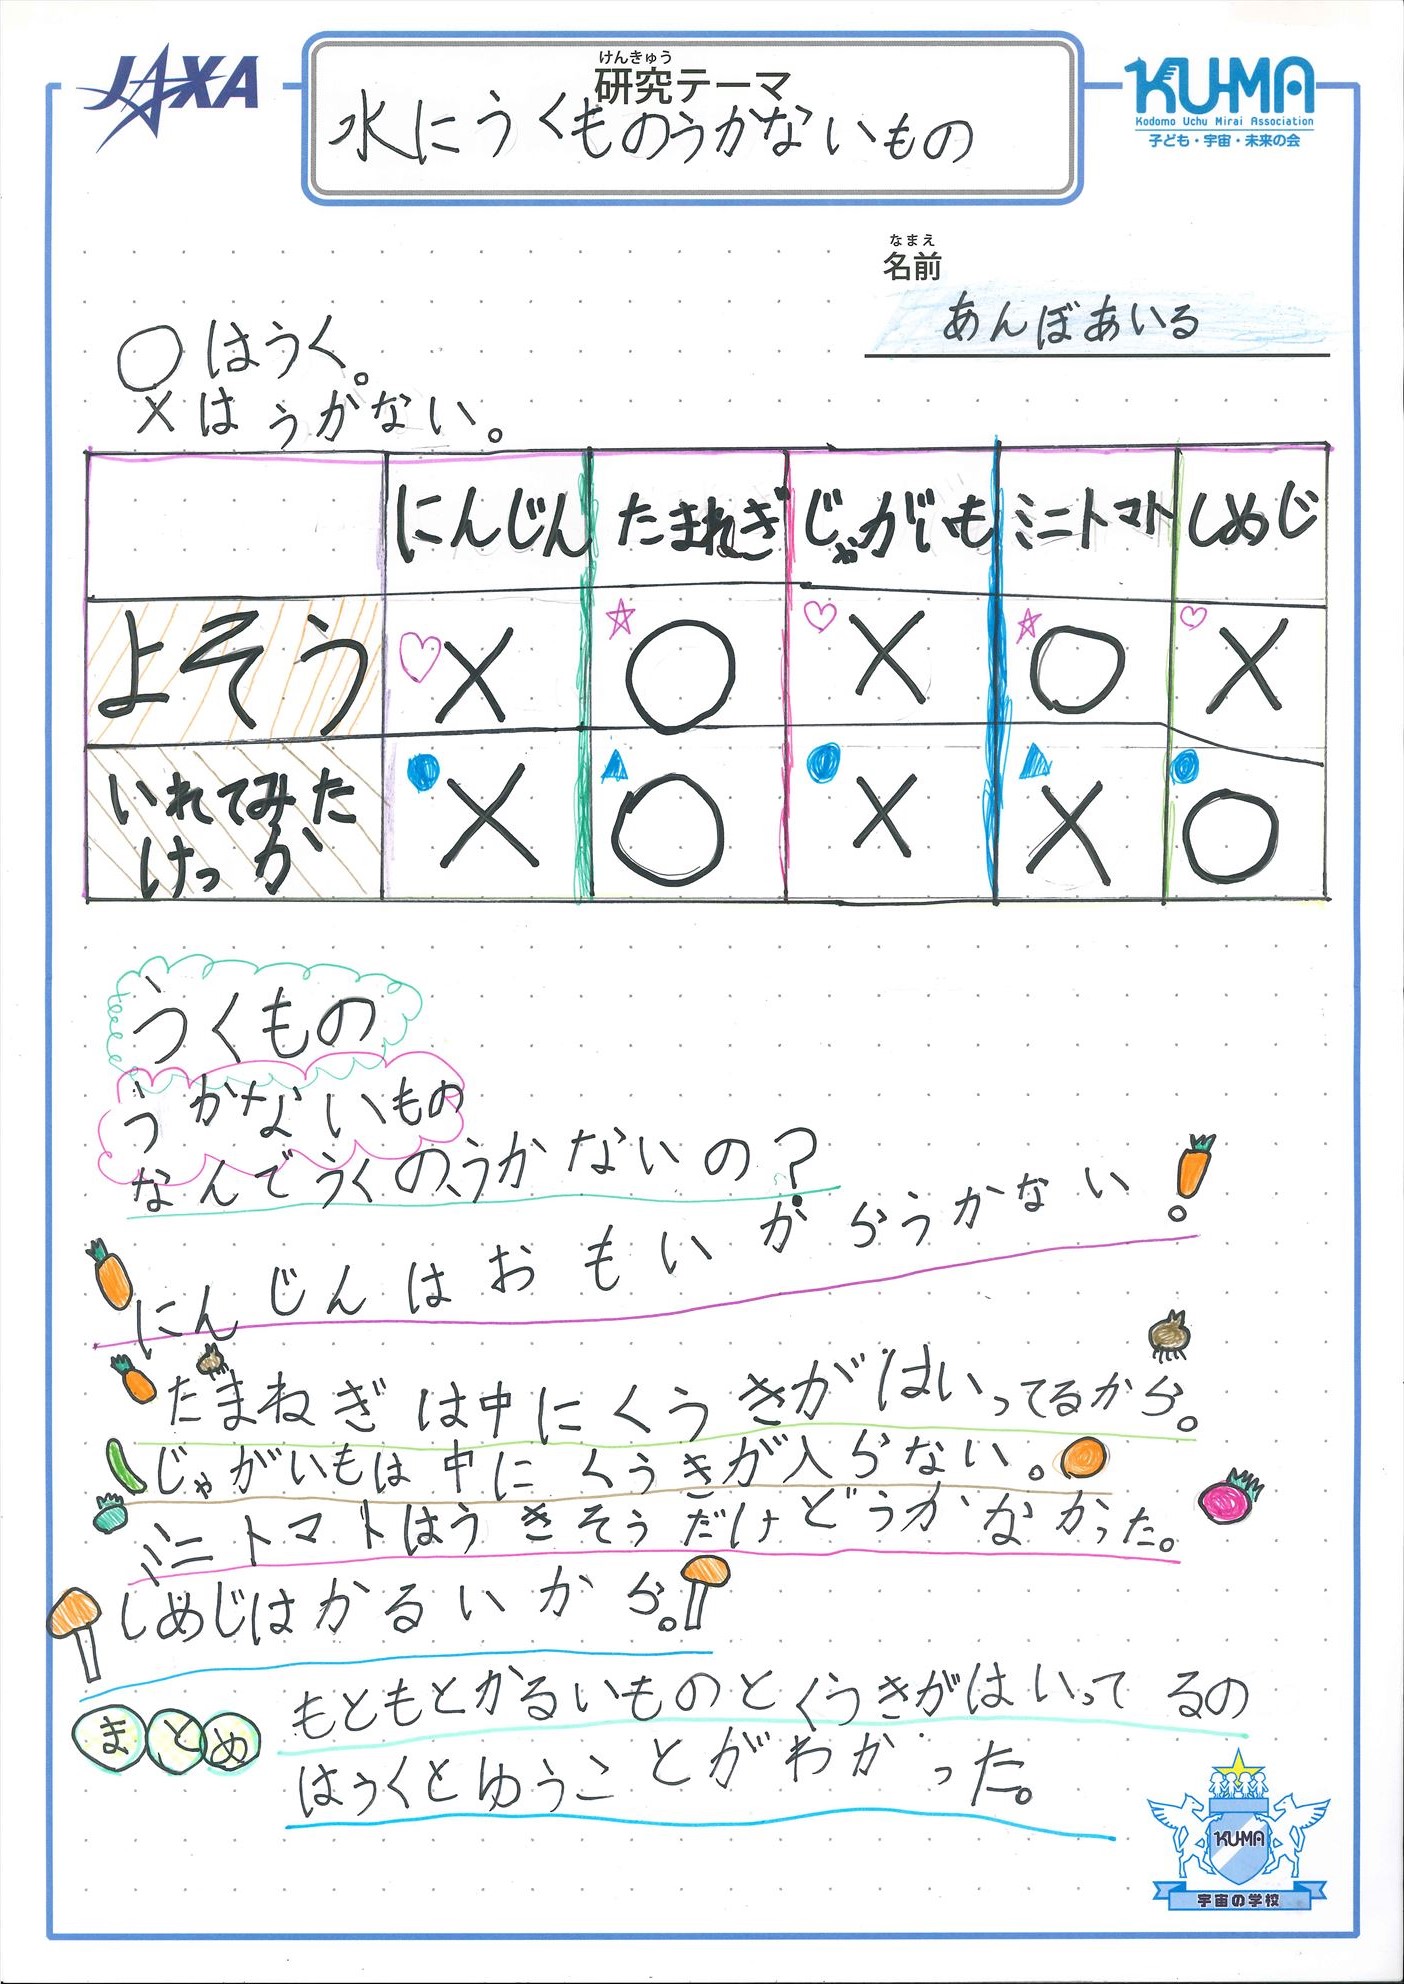 JAXA
けんきゅう
研究テーマ
水にうくものうかないもの
KU-MA
Kodomo Uchu Mirai Association
子ども・宇宙・未来の会
なまえ
名前
あんぼあいる
○はうく。
×はうかない。
にんじん たまねぎ じゃがいも ミニトマト しめじ
よそう × ○ × ○ ×
いれてみた
けっか × ○ × × ○
うくもの
うかないもの
なんでうくの、うかないの?
にんじんはおもいからうかない!
たまねぎは中にくうきがはいってるから。
じゃがいもは中にくうきが入らない。
ミニトマトはうきそうだけどうかなかった。
しめじはかるいから。
まとめ もともとかるいものとくうきがはいってるの
はうくとゆうことがわかった。
KU-MA
宇宙の学校